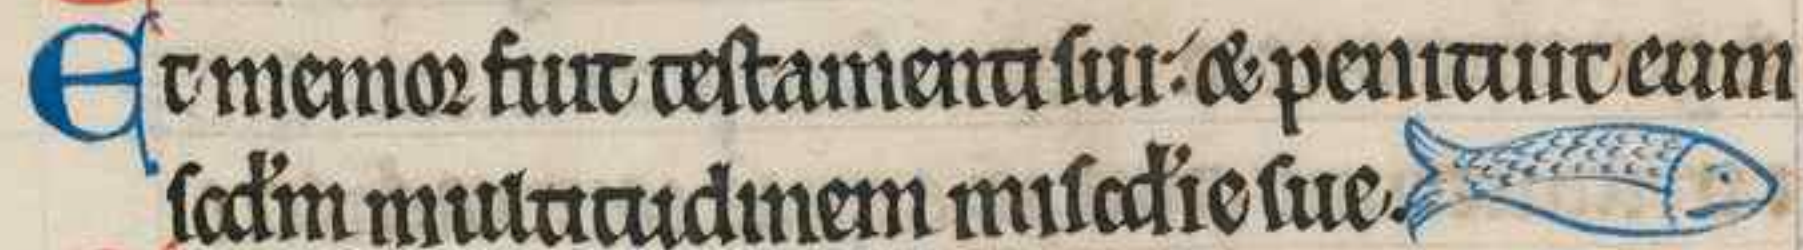 Et memor fuit testamenti sui: & penituit eum
scdm multitudinem miscdie sue.